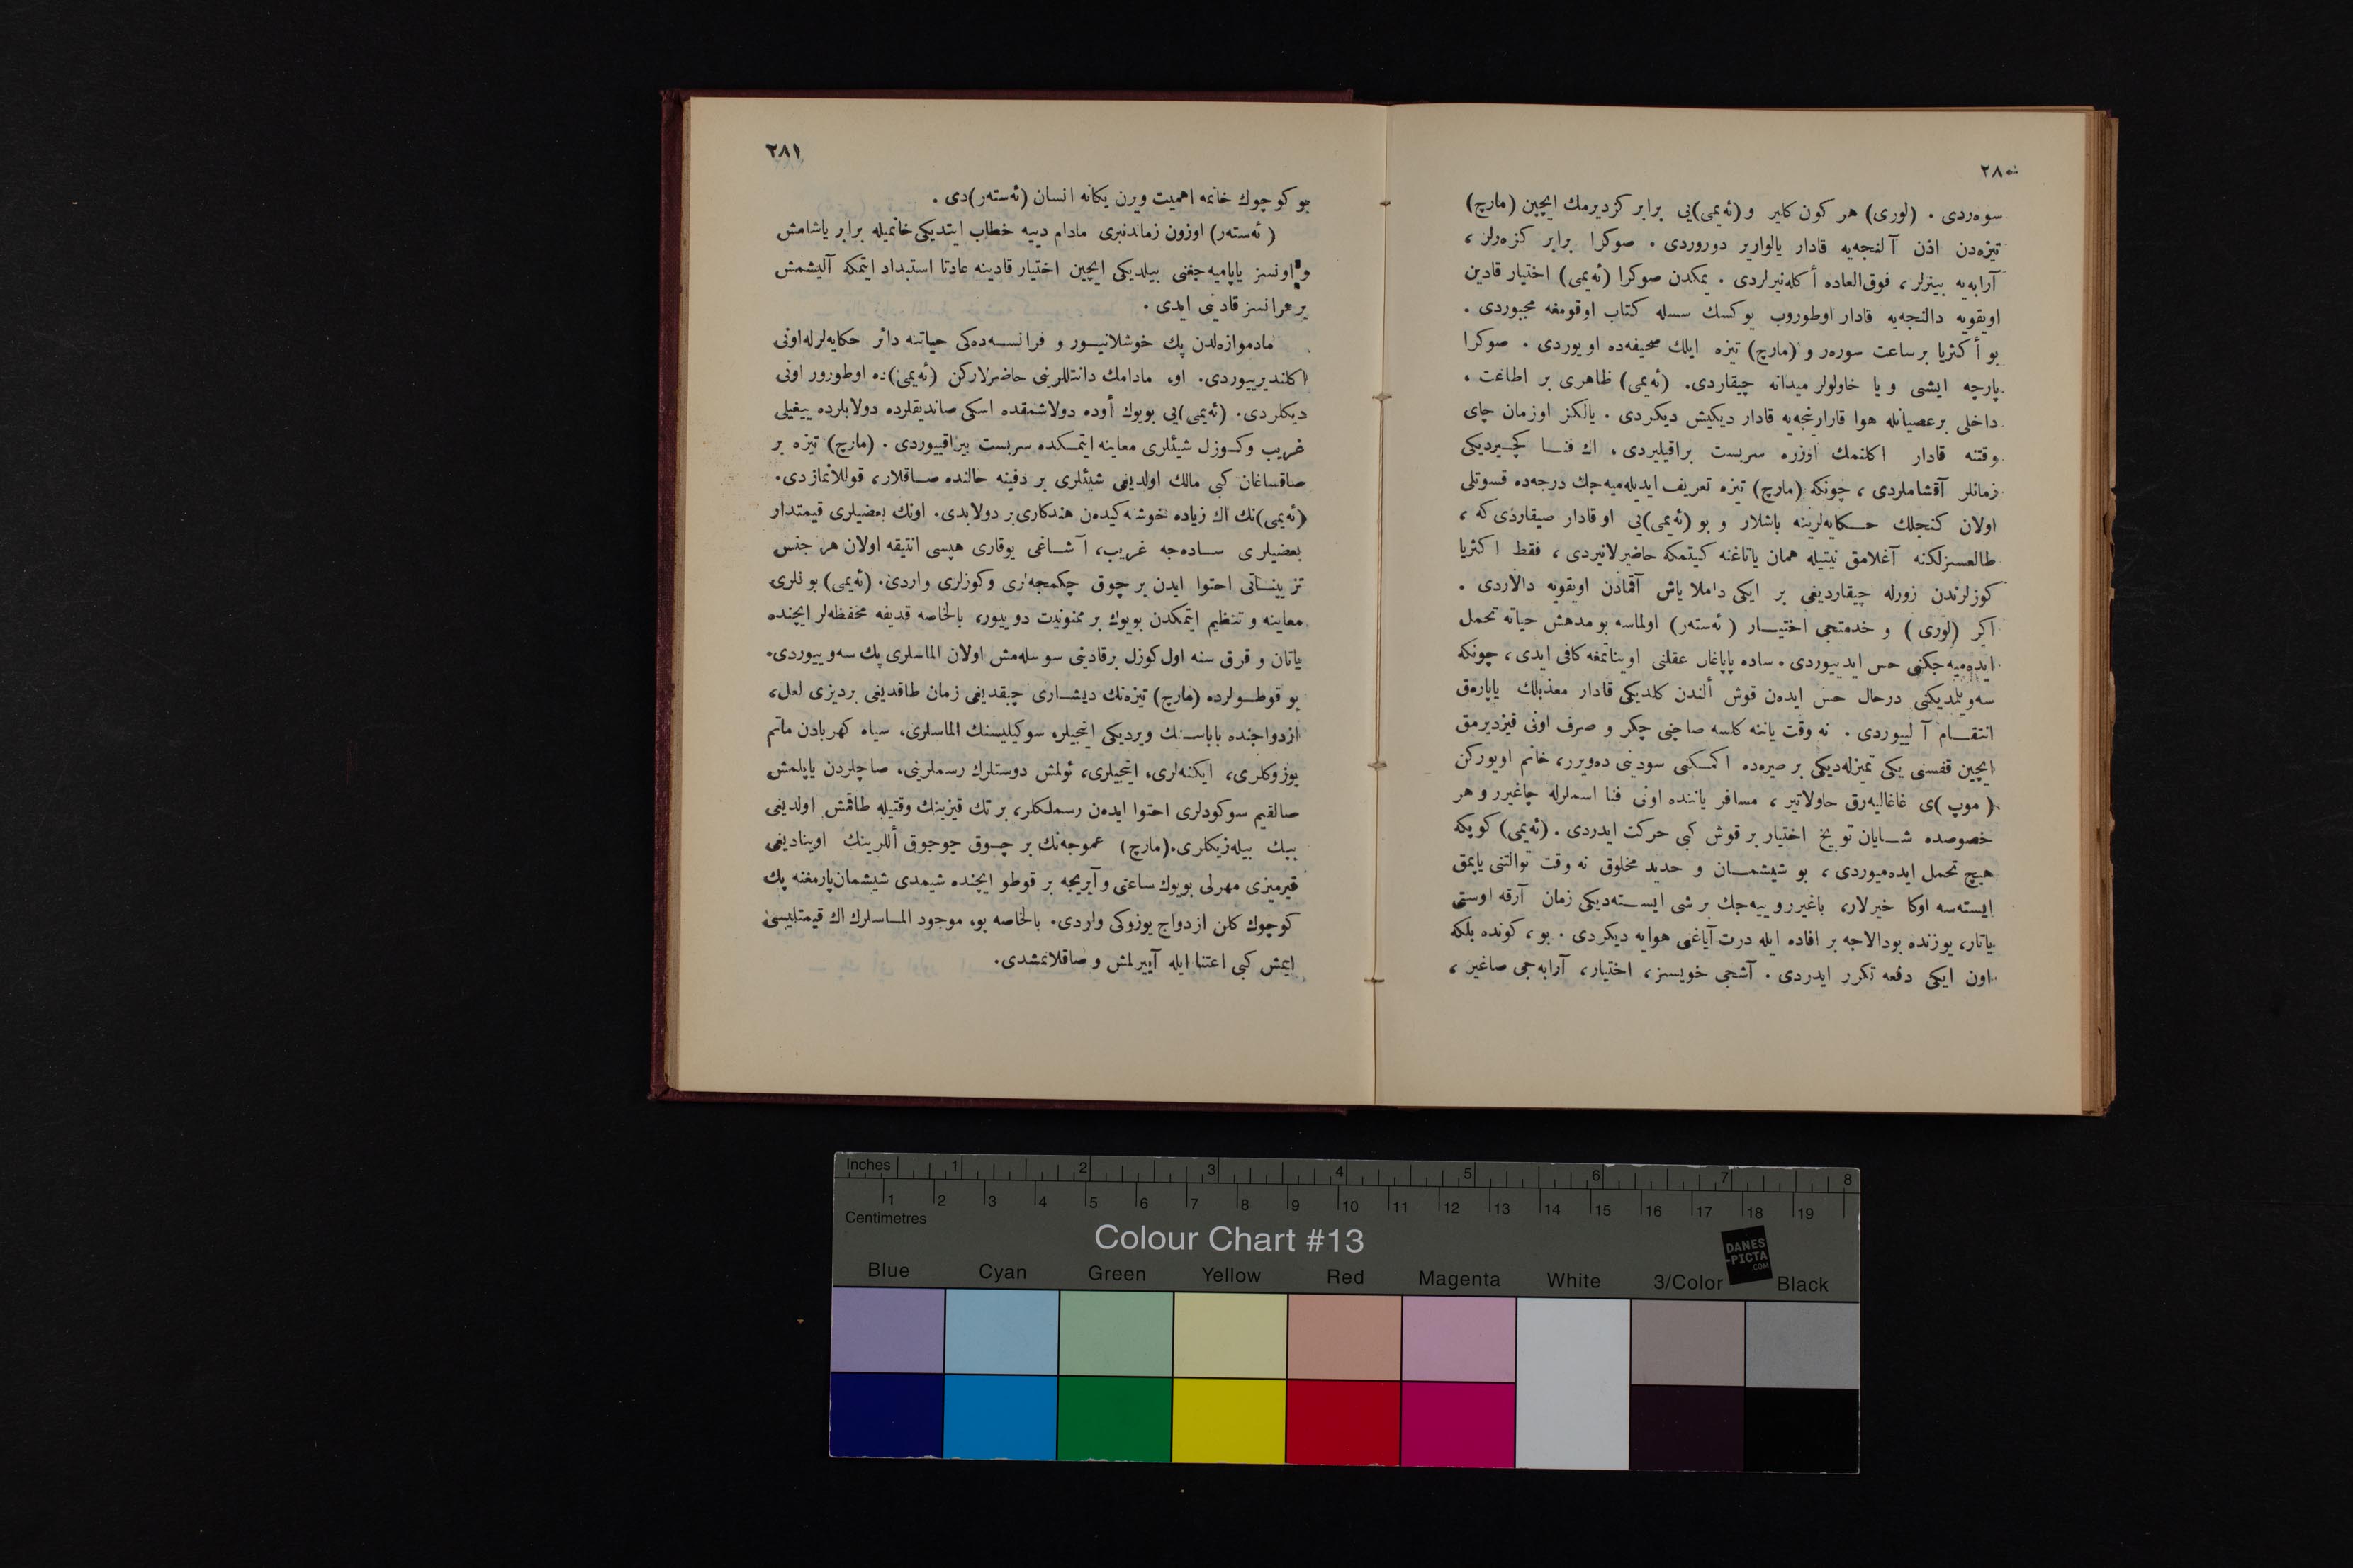 ٢٨٠
سوه‌ردی . (لوری) هر کون کلیر و (ئه‌یمی)یی برابر کزدیرمك ایچین (مارچ)
تیزه‌دن اذن آلنجه‌یه قادار یالواریر دوروردی . صوکرا برابر کزه‌رلر ،
آرابه‌یه بینرلر ، فوق‌العاده أکله‌نیرلردی . یمکدن صوکرا (ئه‌یمی) اختیار قادین
اویقویه دالنجه‌یه قادار اوطوروب یوکسك سسله کتاب اوقومغه مجبوردی .
بو أکثریا برساعت سوره‌ر و (مارچ) تیزه ایلك صحیفه‌ده اویوردی . صوکرا
پارچه ایشی ویا خاولولر میدانه چیقاردی. (ئه‌یمی) ظاهری بر اطاعت ،
داخلی برعصیانله هوا قارارنجه‌یه قادار دیکیش دیکردی . یالکز اوزمان چای
وقتنه قادار اکلنمك اوزره سربست براقیلیردی ، اك فنا کچیردیکی
زمانلر آقشاملردی ، چونکه (مارچ) تیزه تعریف ایدیله‌میه‌جك درجه‌ده قسوتلی
اولان کنجلك حکایه‌لرینه باشلار و بو (ئه‌یمی)یی اوقادار صیقاردی که ،
طالعسزلکنه آغلامق نیتیله همان یاتاغنه کیتمکه حاضیرلانیردی ، فقط اکثریا
کوزلرندن زورله چیقاردیغی بر ایکی داملا یاش آقمادن اویقویه دالاردی .
اکر (لوری) و خدمتجی اختیار (ئه‌سته‌ر) اولماسه بومدهش حیاته تحمل
ایده‌میه‌جکنی حس ایدییوردی . ساده پاپاغان عقلنی اویناتمغه کافی ایدی ، چونکه
سه‌ویلمدیکنی درحال حس ایده‌ن قوش ألندن کلدیکی قادار معذبلك یاپاره‌ق
انتقام آلییوردی . نه وقت یاننه کلسه صاچنی چکر و صرف اونی قیزدیرمق
ایچین قفسنی یکی تمیزله‌دیکی برصیره‌ده اکمکنی سودینی ده‌ویرر، خانم اویورکن
(موپ)ی غاغالیه‌رق حاولاتیر ، مسافر یاننده اونی فنا اسملرله چاغیرر و هر
خصوصده شایان توبیخ اختیار بر قوش کبی حرکت ایدردی . (ئه‌یمی) کوپکه
هیچ تحمل ایده‌میوردی ، بو شیشمان و حدید مخلوق نه وقت توالتنی یاپمق
ایسته‌سه اوکا خیرلار، باغیرر و ییه‌جك بر شی ایسته‌دیکی زمان آرقه اوستی
یاتار، یوزنده بودالاجه بر افاده ایله درت آیاغی هوایه دیکردی . بو ، کونده بلکه
اون ایکی دفعه تکرر ایدردی . آشجی خویسز ، اختیار ، آرابه‌جی صاغیر ،
٢٨١
بو کوچوك خانمه اهمیت ویرن یکانه انسان (ئه‌سته‌ر)دی .
(ئه‌سته‌ر) اوزون زماندنبری مادام دییه خطاب ایتدیکی خانمیله برابر یاشامش
و اونسز یاپامیه‌جغنی بیلدیکی ایچین اختیار قادینه عادتا استبداد ایتمکه آلیشمش
بر قادینی ایدی .
مادموازه‌لدن پك خوشلانیور و فرانسه‌ده‌کی حیاتنه دائر حکایه‌لرله اونی
اکلندیرییوردی. او، مادامك دانتللرینی حاضرلارکن (ئه‌یمی)ده اوطورور اونی
دیکلردی. (ئه‌یمی)یی بویوك أوده دولاشمقده اسکی صاندیقلرده دولابلرده ییغیلی
غریب وکوزل شیئلری معاینه ایتمکده سربست بیراقییوردی . (مارچ) تیزه بر
صاقساغان کبی مالك اولدیغی شیئلری بر دفینه حالنده صاقلار، قوللانمازدی.
(ئه‌یمی)نك اك زیاده خوشنه کیده‌ن هندکاری بر دولابدی. اونك بعضیلری قیمتدار
بعضیلری ساده‌جه غریب، آشاغی یوقاری هپسی انتیقه اولان هر جنس
تزییناتی احتوا ایدن بر چوق چکمجه‌لری وکوزلری واردی. (ئه‌یمی) بونلری
معاینه و تنظیم ایتمکدن بویوك بر ممنونیت دوییور، بالخاصه قدیفه محفظه‌لر ایچنده
یاتان و قرق سنه اول کوزل برقادینی سوسله‌مش اولان الماسلری پك سه‌وییوردی.
بو قوطولرده (مارچ) تیزه‌نك دیشاری چیقدیغی زمان طاقدیغی بردیزی لعل،
ازدواجنده باباسنك ویردیکی انجیلر، سوکیلیسنك الماسلری، سیاه کهربادن ماتم
یوزوکلری، ایکنه‌لری، انجیلری، ئولمش دوستلرك رسملرینی، صاچلردن یاپلمش
صالقیم سوکودلری احتوا ایده‌ن رسملکلر، بر تك قیزینك وقتیله طاقمش اولدیغی
ببك بیله‌زیکلری. (مارچ) عموجه‌نك بر چوق چوجوق أللرینك اوینادیغی
قیرمیزی مهرلی بویوك ساعتی و آیریجه بر قوطو ایچنده شیمدی شیشمان پارمغنه پك
کوچوك کلن ازدواج یوزوکی واردی. بالخاصه بو، موجود الماسلرك اك قیمتلیسی
ایمش کبی اعتنا ایله آییرلمش و صاقلانمشدی.
Inches 1 2 3 4 5 6 7 8
1 2 3 4 5 6 7 8 9 10 11 12 13 14 15 16 17 18 19
Centimetres
Colour Chart #13
DANES
-PICTA
.COM
Blue Cyan Green Yellow Red Magenta White 3/Color Black